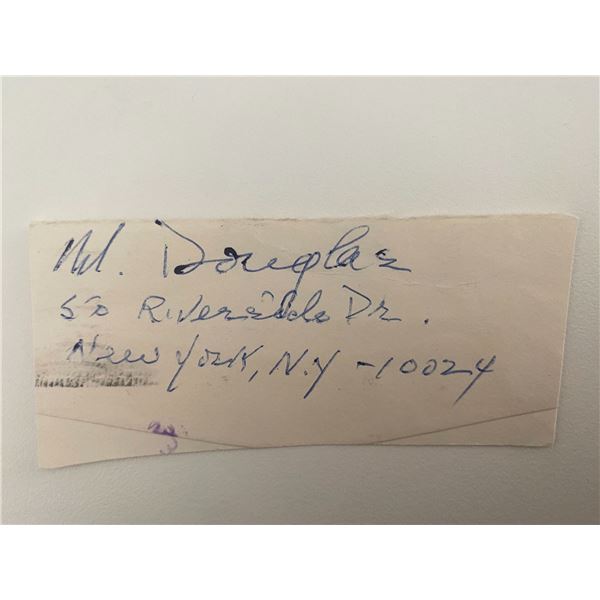 M. Douglas
50 Riverside Dr.
New York, N.Y - 10024